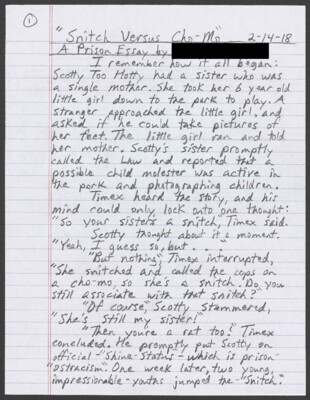 1
"Snitch Versus Cho-Mo" 2-14-18
A Prison Essay by
I remember how it all began:
Scotty Too Hotty had a sister who was
a single mother. She took her 6 year old
little girl down to the park to play. A
stranger approached the little girl, and
asked if he could take pictures of
her feet. The little girl ran and told
her mother. Scotty's sister promptly
called the Law and reported that a
possible child molester was active in
the park and photographing children.
Timex heard the story, and his
mind could only lock onto one thought:
"So your sisters a snitch, Timex said.
Scotty thought about it a moment.
"Yeah, I guess so, but . . .
"But nothing," Timex interrupted,
"She snitched and called the cops on
a cho-mo, so she's a snitch. Do you
still associate with that snitch?"
"Of course," Scotty stammered,
"She's still my sister!"
"Then you're a rat too!" Timex
concluded. He promptly put Scotty on
official "Shine-Status - which is prison-
"ostracism". One week later, two young,
impressionable youths jumped the "snitch."